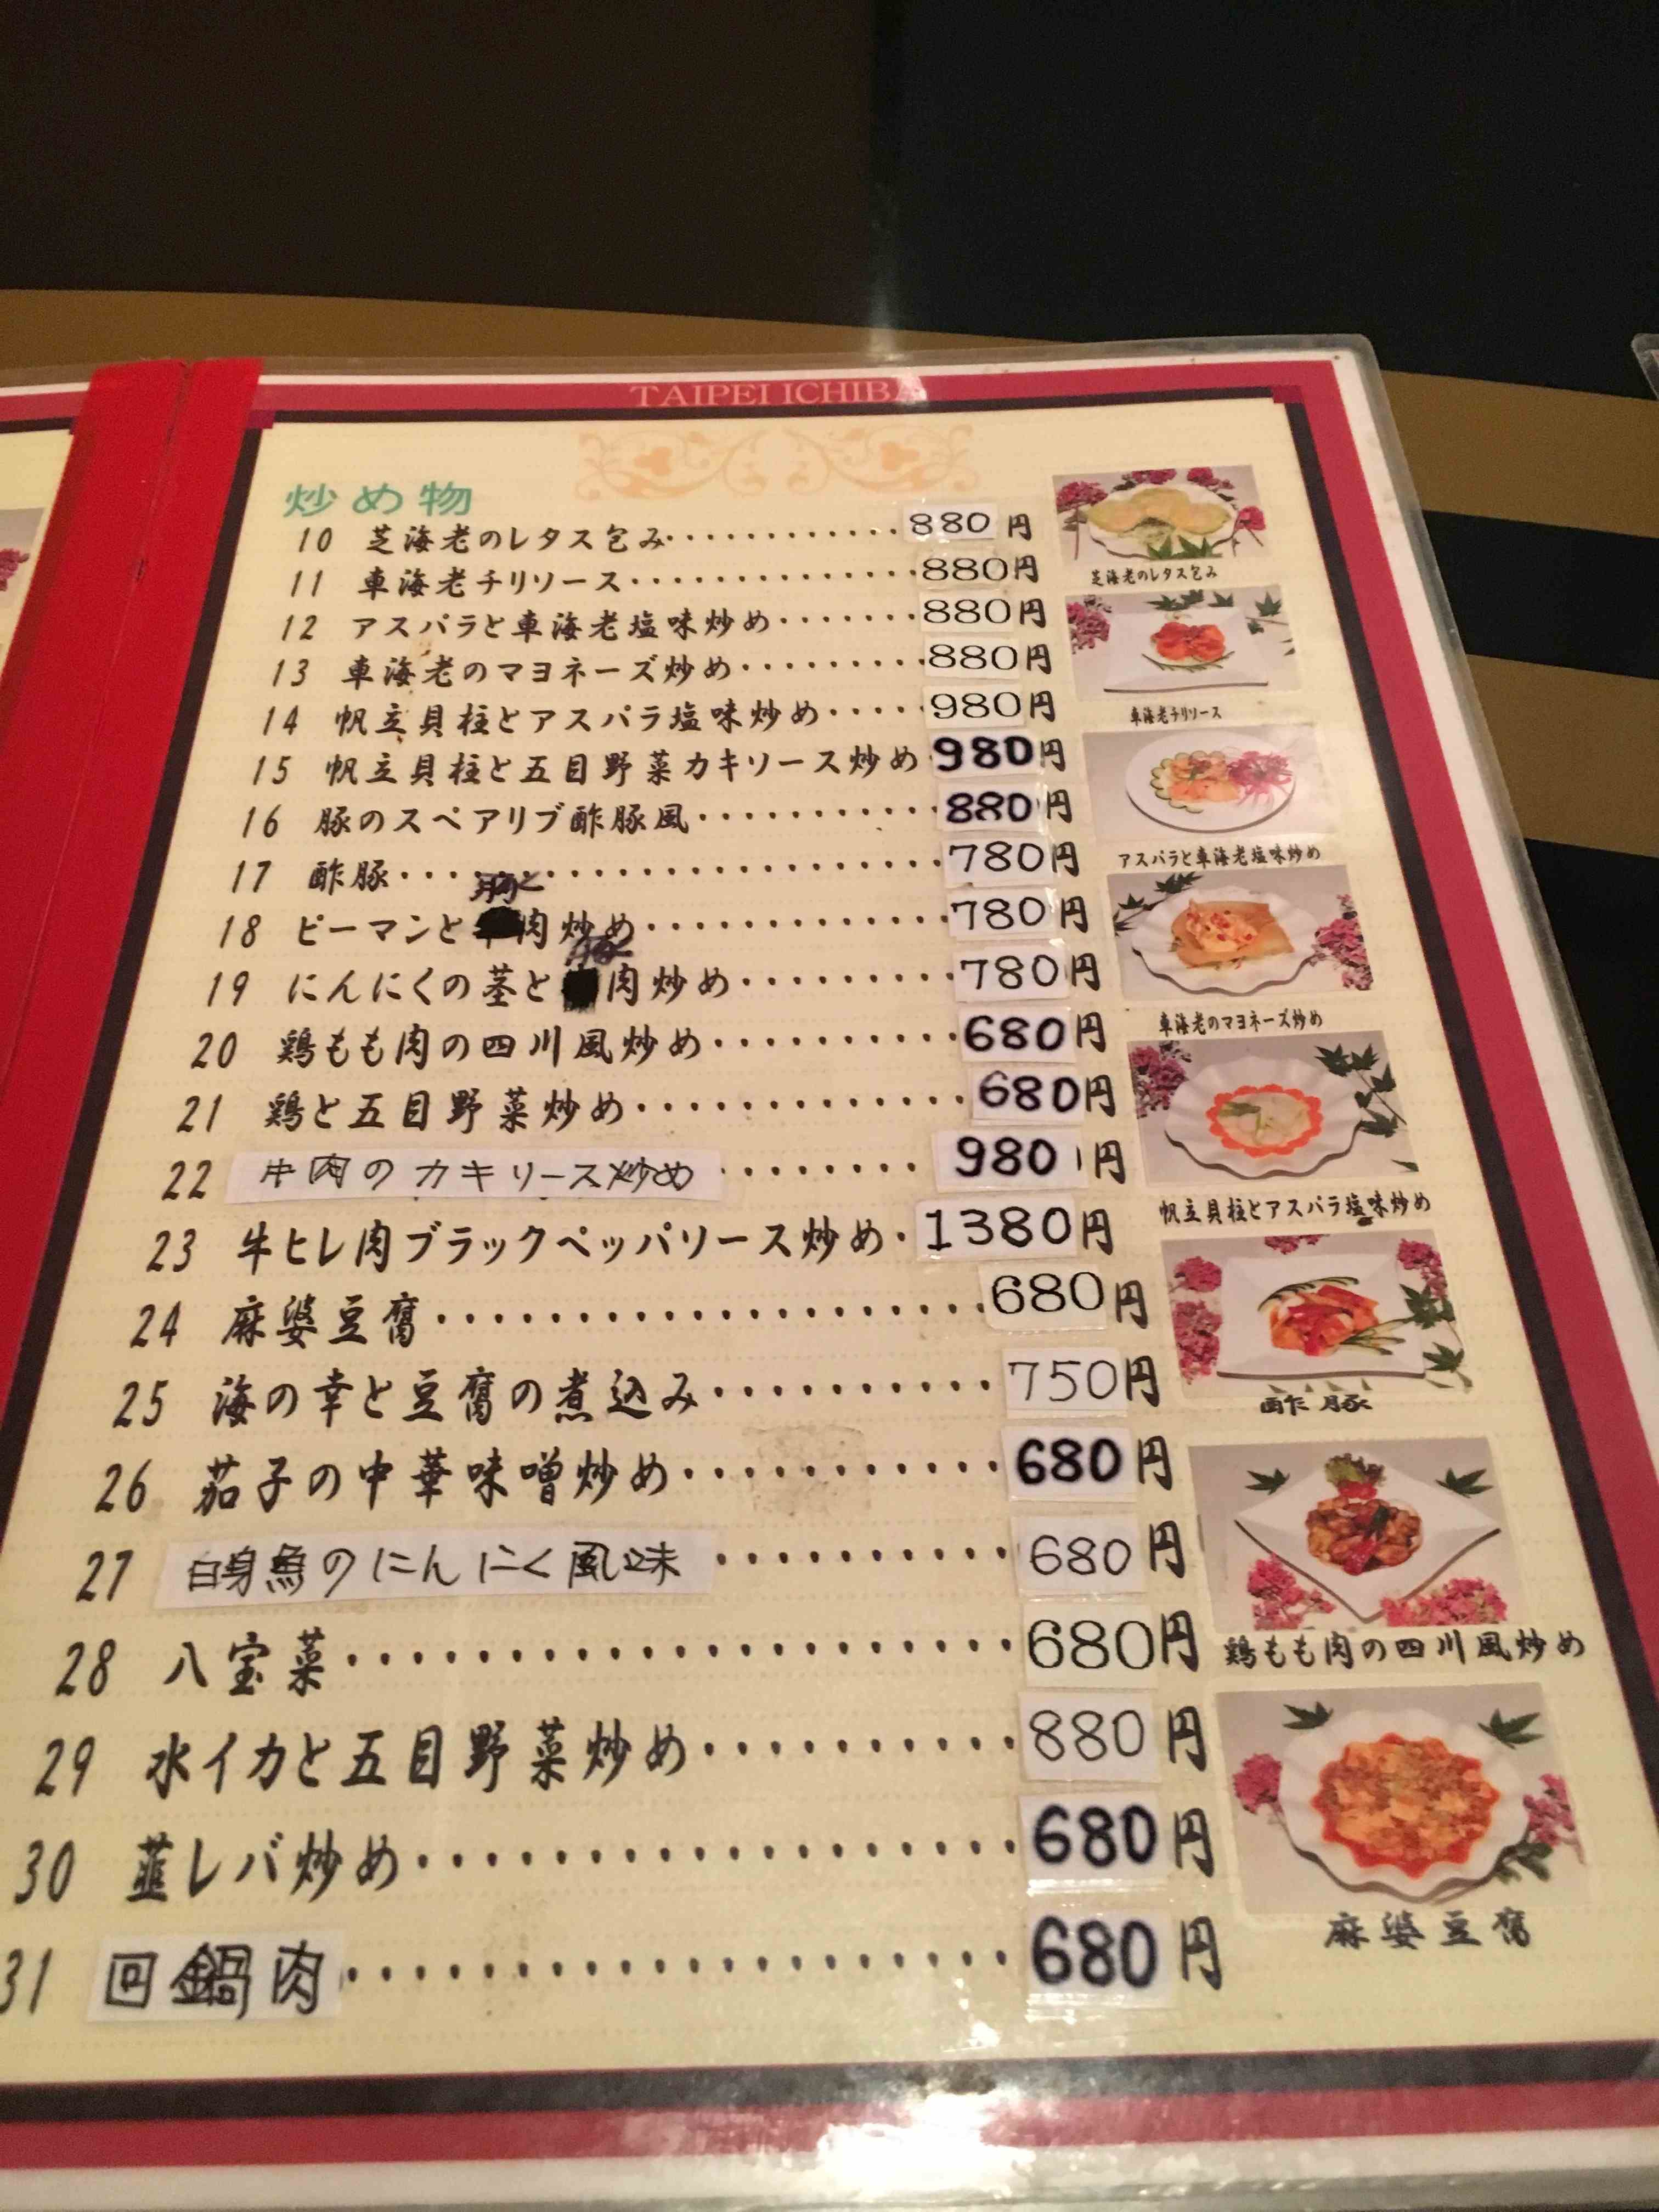 TAIPEI ICHIBA
炒め物
10 芝海老のレタス包み············880円
11 車海老チリソース··············880円
12 アスパラと車海老塩味炒め·······880円
13 車海老のマヨネーズ炒め·········880円
14 帆立貝柱とアスパラ塩味炒め·····980円
15 帆立貝柱と五目野菜カキソース炒め·980円
16 豚のスペアリブ酢豚風···········880円
17 酢豚······················780円
18 ピーマンと豚肉炒め·············780円
19 にんにくの茎と豚肉炒め·········780円
20 鶏もも肉の四川風炒め··········680円
21 鶏と五目野菜炒め·············680円
22 牛肉のカキソース炒め········980円
23 牛ヒレ肉ブラックペッパソース炒め·1380円
24 麻婆豆腐····················680円
25 海の幸と豆腐の煮込み··········750円
26 茄子の中華味噌炒め···········680円
27 白身魚のにんにく風味··········680円
28 八宝菜·····················680円
29 水イカと五目野菜炒め··········880円
30 韮レバ炒め··················680円
31 回鍋肉····················680円
芝海老のレタス包み
車海老チリソース
アスパラと車海老塩味炒め
車海老のマヨネーズ炒め
帆立貝柱とアスパラ塩味炒め
酢豚
鶏もも肉の四川風炒め
麻婆豆腐